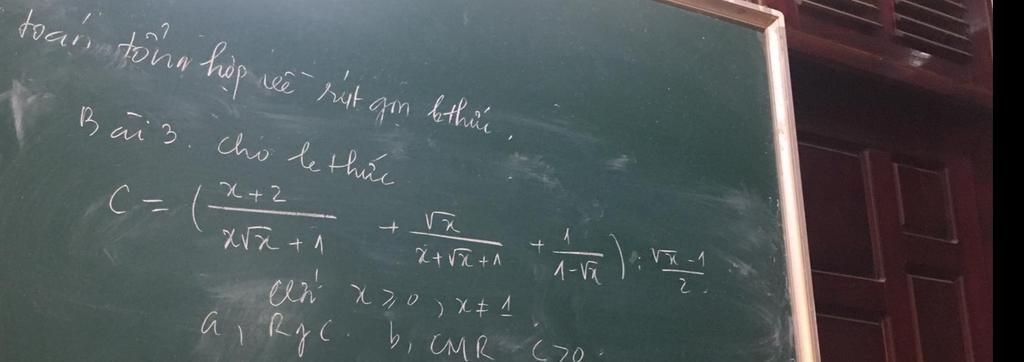 toán tổng hợp về rút gọn bthức.
Bài 3. Cho bthức
C = (\frac{x+2}{x\sqrt{x}+1} + \frac{\sqrt{x}}{x+\sqrt{x}+1} + \frac{1}{1-\sqrt{x}}) : \frac{\sqrt{x}-1}{2}.
với x ≥ 0, x ≠ 1
a, Rgc. b, CMR C>0.